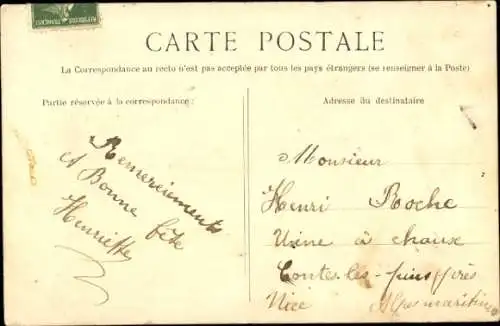 CARTE POSTALE
La Correspondance au recto n'est pas acceptée par tous les pays étrangers (se renseigner à la Poste)
Partie réservée à la correspondance :
Remerciements
et Bonne fête
Henriette
Adresse du destinataire
Monsieur
Henri Roche
Usine à chaux
Contes-les-pins près
Nice Alpes maritimes